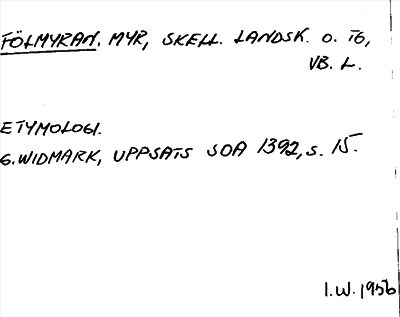 FÖLMYRAN. MYR, SKELL. LANDSK. O. TG,
VB. L.
ETYMOLOGI.
G. WIDMARK, UPPSATS SOA 1392, s. 15.
I.W. 1956